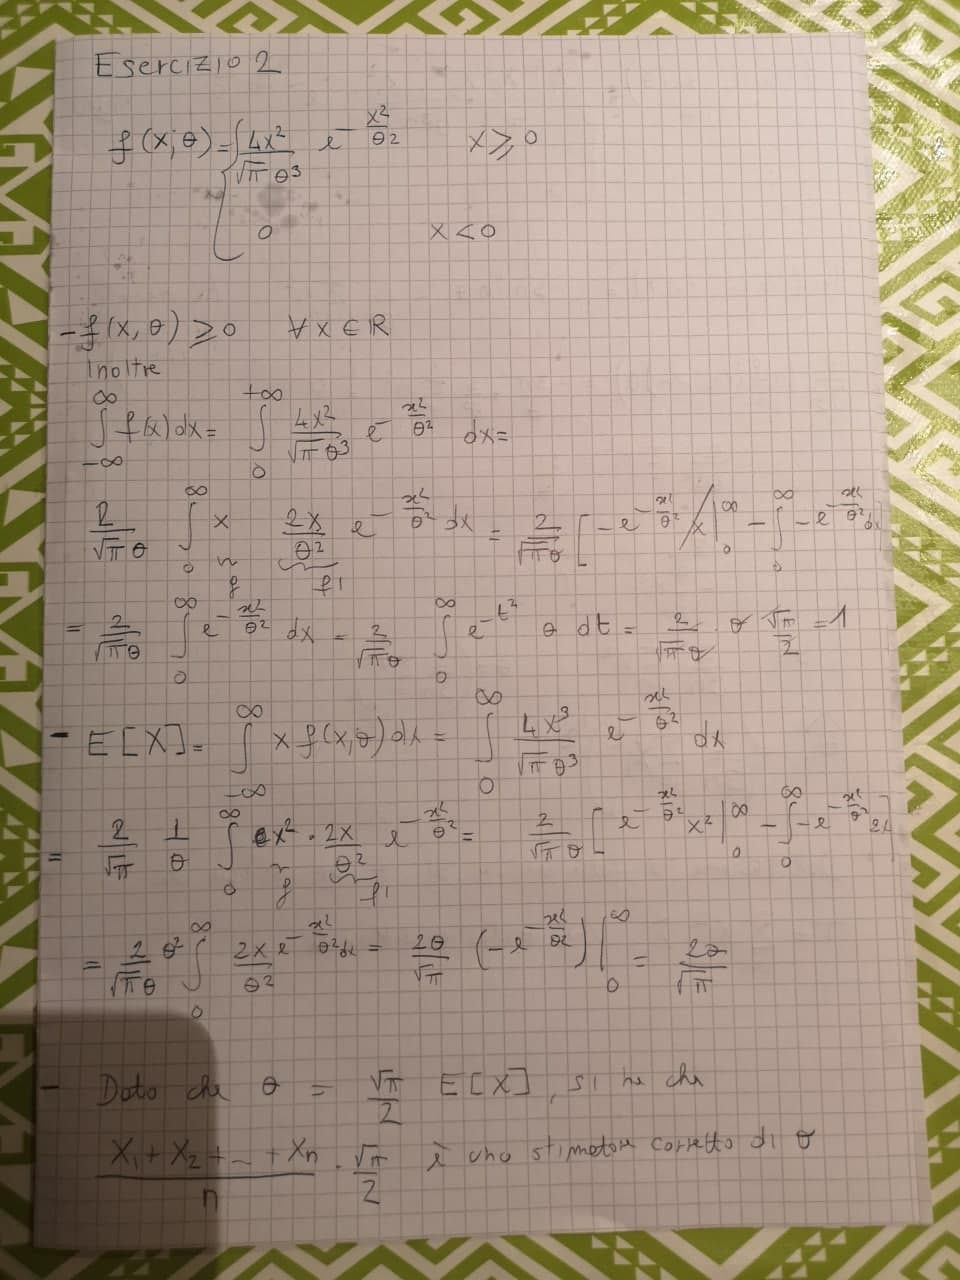 Esercizio 2
f(x;θ) = { 4x²/(√π θ³) e^(-x²/θ²) x ≥ 0
0 x < 0
- f(x,θ) ≥ 0 ∀ x ∈ R
Inoltre
∫_{-∞}^{∞} f(x)dx = ∫_0^{+∞} 4x²/(√π θ³) e^(-x²/θ²) dx =
2/(√π θ) ∫_0^∞ x 2x/θ² e^(-x²/θ²) dx = 2/(√π θ) [ -e^(-x²/θ²) x |_0^∞ - ∫_0^∞ -e^(-x²/θ²) dx ]
g f'
= 2/(√π θ) ∫_0^∞ e^(-x²/θ²) dx = 2/(√π θ) ∫_0^∞ e^(-t²) θ dt = 2/(√π θ) · θ √π/2 = 1
- E[X] = ∫_{-∞}^{∞} x f(x,θ) dx = ∫_0^∞ 4x³/(√π θ³) e^(-x²/θ²) dx
= 2/√π 1/θ ∫_0^∞ x² · 2x/θ² e^(-x²/θ²) = 2/(√π θ) [ e^(-x²/θ²) x² |_0^∞ - ∫_0^∞ -e^(-x²/θ²) 2x ]
g f'
= 2/(√π θ) θ² ∫_0^∞ 2x/θ² e^(-x²/θ²) dx = 2θ/√π (-e^(-x²/θ²)) |_0^∞ = 2θ/√π
- Dato che θ = √π/2 E[X], si ha che
(X₁ + X₂ + ... + Xn)/n · √π/2 è uno stimatore corretto di θ